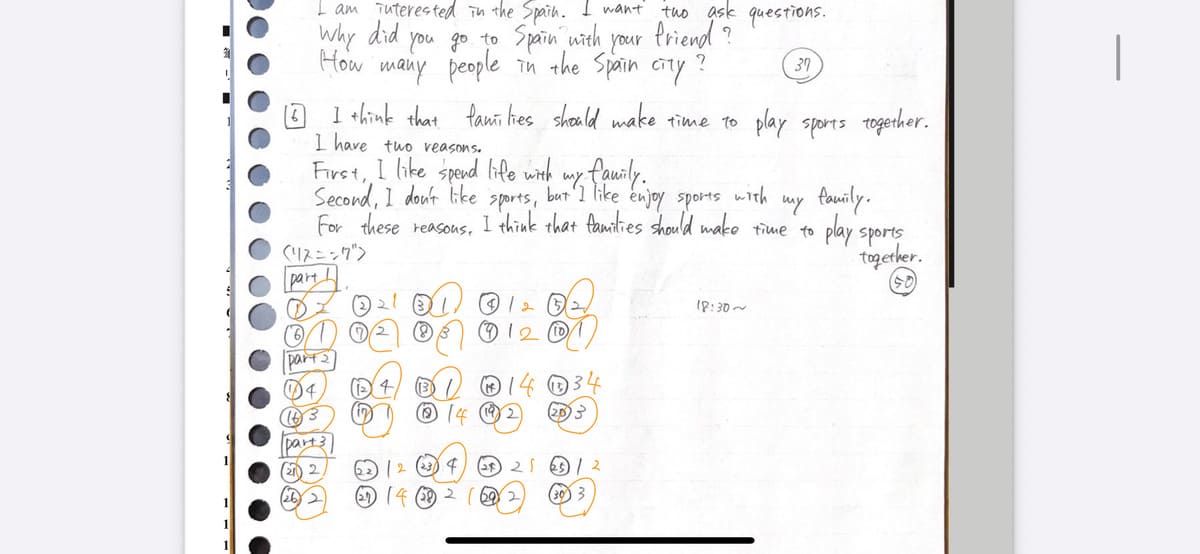 I am interested in the Spain. I want two ask questions.
Why did you go to Spain with your friend?
How many people in the Spain city?
37
6 I think that families should make time to play sports together.
I have two reasons.
First, I like spend life with my family.
Second, I don't like sports, but I like enjoy sports with my family.
For these reasons, I think that families should make time to play sports
together.
50
<リスニング>
18:30~
part 1
① 2 ② 2 1 ③ 1 ④ 1 2 ⑤ 2
⑥ 1 ⑦ 2 ⑧ 3 ⑨ 1 2 ⑩ 1
part 2
⑪ 4 ⑫ 4 ⑬ 1 ⑭ 1 4 ⑮ 3 4
⑯ 3 ⑰ 1 ⑱ 1 4 ⑲ 2 ⑳ 3
part 3
㉑ 2 ㉒ 1 2 ㉓ 4 ㉔ 2 1 ㉕ 1 2
㉖ 2 ㉗ 1 4 ㉘ 2 1 ㉙ 2 ㉚ 3